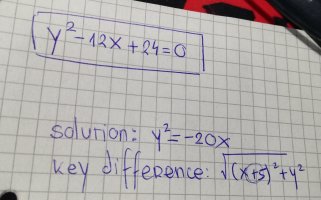 y²-12x+24=0
solution: y²=-20x
key difference: √(x+5)²+y²